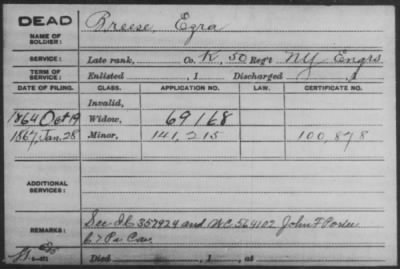 DEAD
NAME OF SOLDIER: Breese, Ezra
SERVICE: Late rank, Co. K, 50 Reg't NY Engrs
TERM OF SERVICE: Enlisted , 1 Discharged , 1
DATE OF FILING. CLASS. APPLICATION NO. LAW. CERTIFICATE NO.
Invalid,
1864 Oct 19 Widow, 69168
1867, Jan. 28 Minor, 141,215 100,878
ADDITIONAL SERVICES:
REMARKS: See 357924 and WC. 564102 John F Porter
67 Pa Cav
Died , 1 , at